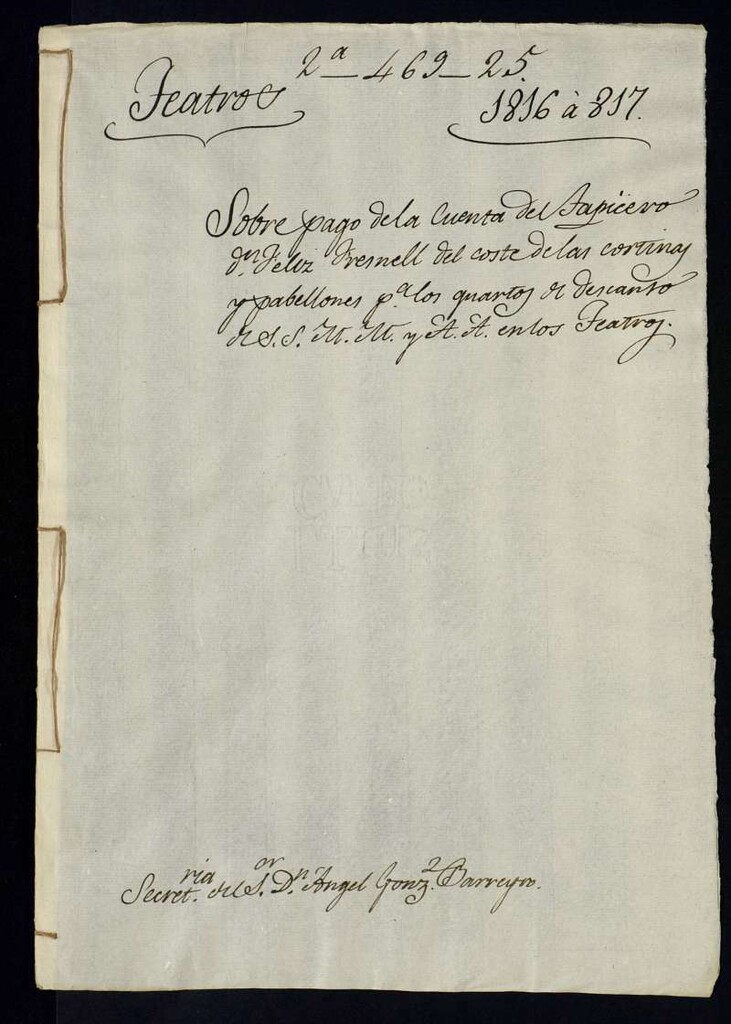 2ª - 469 - 25.
Teatros
1816 à 817.
Sobre pago de la Cuenta del Tapicero
dⁿ. Feliz Fresnell del coste de las cortinas
y pabellones pª los quartos de descanso
de S. S. M. M. y A. A. en los Teatros.
Secretʳⁱᵃ. del Sᵒʳ. Dⁿ Angel Gonzᶻ. Barreyro.